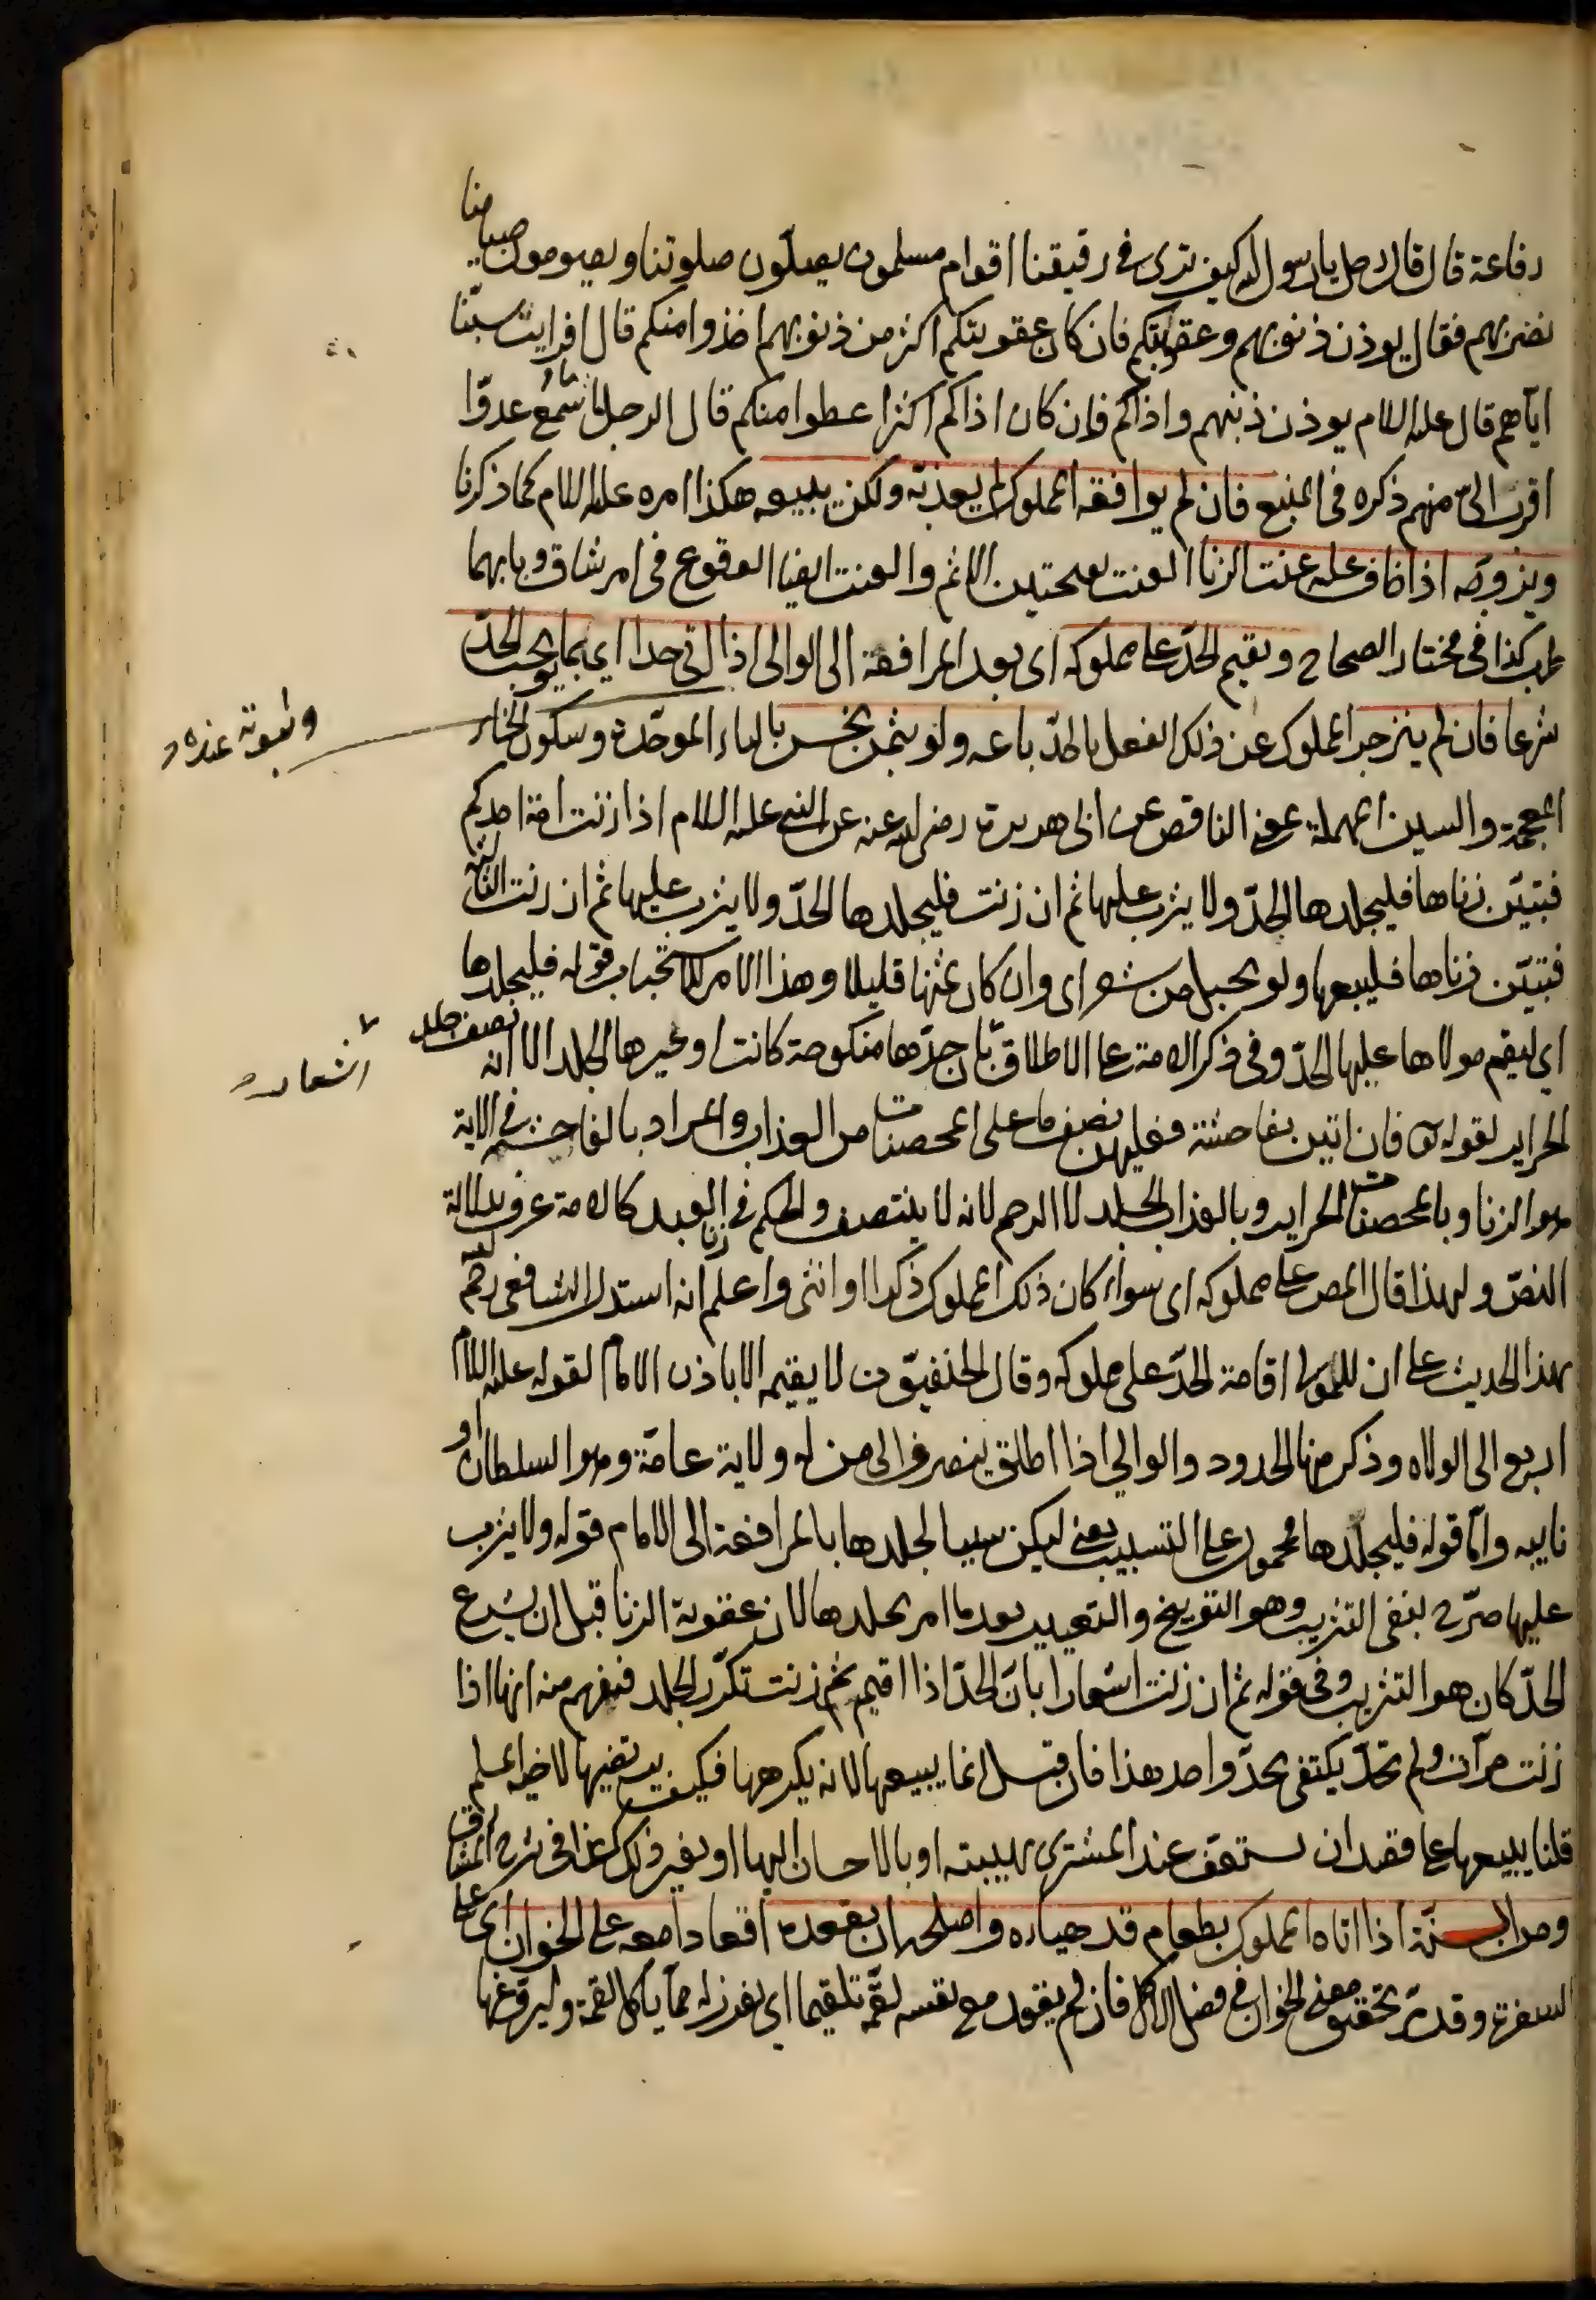 رفاعة قال قال رجل يا رسول الله كيف ترى في رقيقنا اقوام مسلمون يصلّون صلوتنا ويصومون صيامنا
نضربهم فقال يوذن ذنوبهم وعقوبتكم فان كان عقوبتكم اكثر من ذنوبهم اخذوا منكم قال افرايت سبّنا
ايّاهم قال عليه السلام يوذن ذنبهم واذاكم فان كان اذاكم اكثر اعطوا منكم قال الرجل ما سمع عدوّا
اقرب اليّ منهم ذكره في المنبع فان لم يوافقه المملوك لم يعذبه ولكن يبيعه هكذا امره عليه السلام كما ذكرنا
ويزوجه اذا خاف عليه عنت الزنا العنت بفتحتين الاثم والعنت ايضا الوقوع في امر شاق وبابهما
طرب كذا في مختار الصحاح ويقيم الحدّ على مملوكه اى بعد المرافعة الى الوالى اذا اتى حدا اى بما يوجب الحدّ
شرعا فان لم ينزجر المملوك عن ذلك الفعل بالحدّ باعه ولو بثمن بخس بالباء الموحّدة وسكون الخاء
المعجمة والسين المهملة بمعنى الناقص عن ابى هريرة رضي الله عنه عن النبي عليه السلام اذا زنت امة احدكم
فتبيّن زناها فليجلدها الحدّ ولا يثرب عليها ثم ان زنت فليجلدها الحدّ ولا يثرب عليها ثم ان زنت الثالثة
فتبيّن زناها فليبعها ولو بحبل من شعر اى وان كان ثمنها قليلا وهذا الامر للاستحباب قوله فليجلدها
اى ليقم مولاها عليها الحدّ وفى ذكر الامة على الاطلاق بان حدّها منكوحة كانت او غيرها الجلد الا انه نصف جلد
اشعار
الحراير لقوله تعالى فان اتين بفاحشة فعليهن نصف ما على المحصنات من العذاب والمراد بالفاحشة في الاية
هو الزنا وبالمحصنات الحراير وبالعذاب الجلد لا الرجم لانه لا ينتصف والحكم في زنا العبد كالامة عرف بدلالة
النصّ ولهذا قال المص على مملوكه اى سواء كان ذلك المملوك ذكرا او انثى واعلم انه استدل الشافعى رحمه الله
بهذا الحديث على ان للمولى اقامة الحدّ على مملوكه وقال الحنفيّون لا يقيمه الا باذن الامام لقوله عليه السلام
اربع الى الولاه وذكر منها الحدود والوالي اذا اطلق ينصرف الى من له ولاية عامّة وهو السلطان او
نايبه وامّا قوله فليجلدها محمول على التسبيب يعنى ليكن سببا لجلدها بالمرافعة الى الامام قوله ولا يثرب
عليها صرّح بنفى التثريب وهو التوبيخ والتعيير بعد ما امر بجلدها لان عقوبة الزنا قبل ان يشرع
الحدّ كان هو التثريب وفى قوله ثم ان زنت اشعار ابانّ الحدّ اذا اقيم ثم زنت تكرّر الجلد فيفهم منه انها اذا
زنت مرّات ولم تحدّ يكتفى بحدّ واحد هذا فان قيل انما يبيعها لانه يكرهها فكيف يرتضيها لاخيه المسلم
قلنا يبيعها على قصد ان تستعف عند المشترى بهيبته او بالاحسان اليها او بغير ذلك كذا فى شرح المشارق
ومن السنّة اذا اتاه المملوك بطعام قد هياءه واصلحه ان يقعده اقعادا معه على الخوان اى على
السفرة وقد مرّ تحقيق معنى الخوان في فصل الاكل فان لم يقعده مع نفسه لقّمه تلقيما اى يفرز له ممّا ياكل لقمة وليروّغها